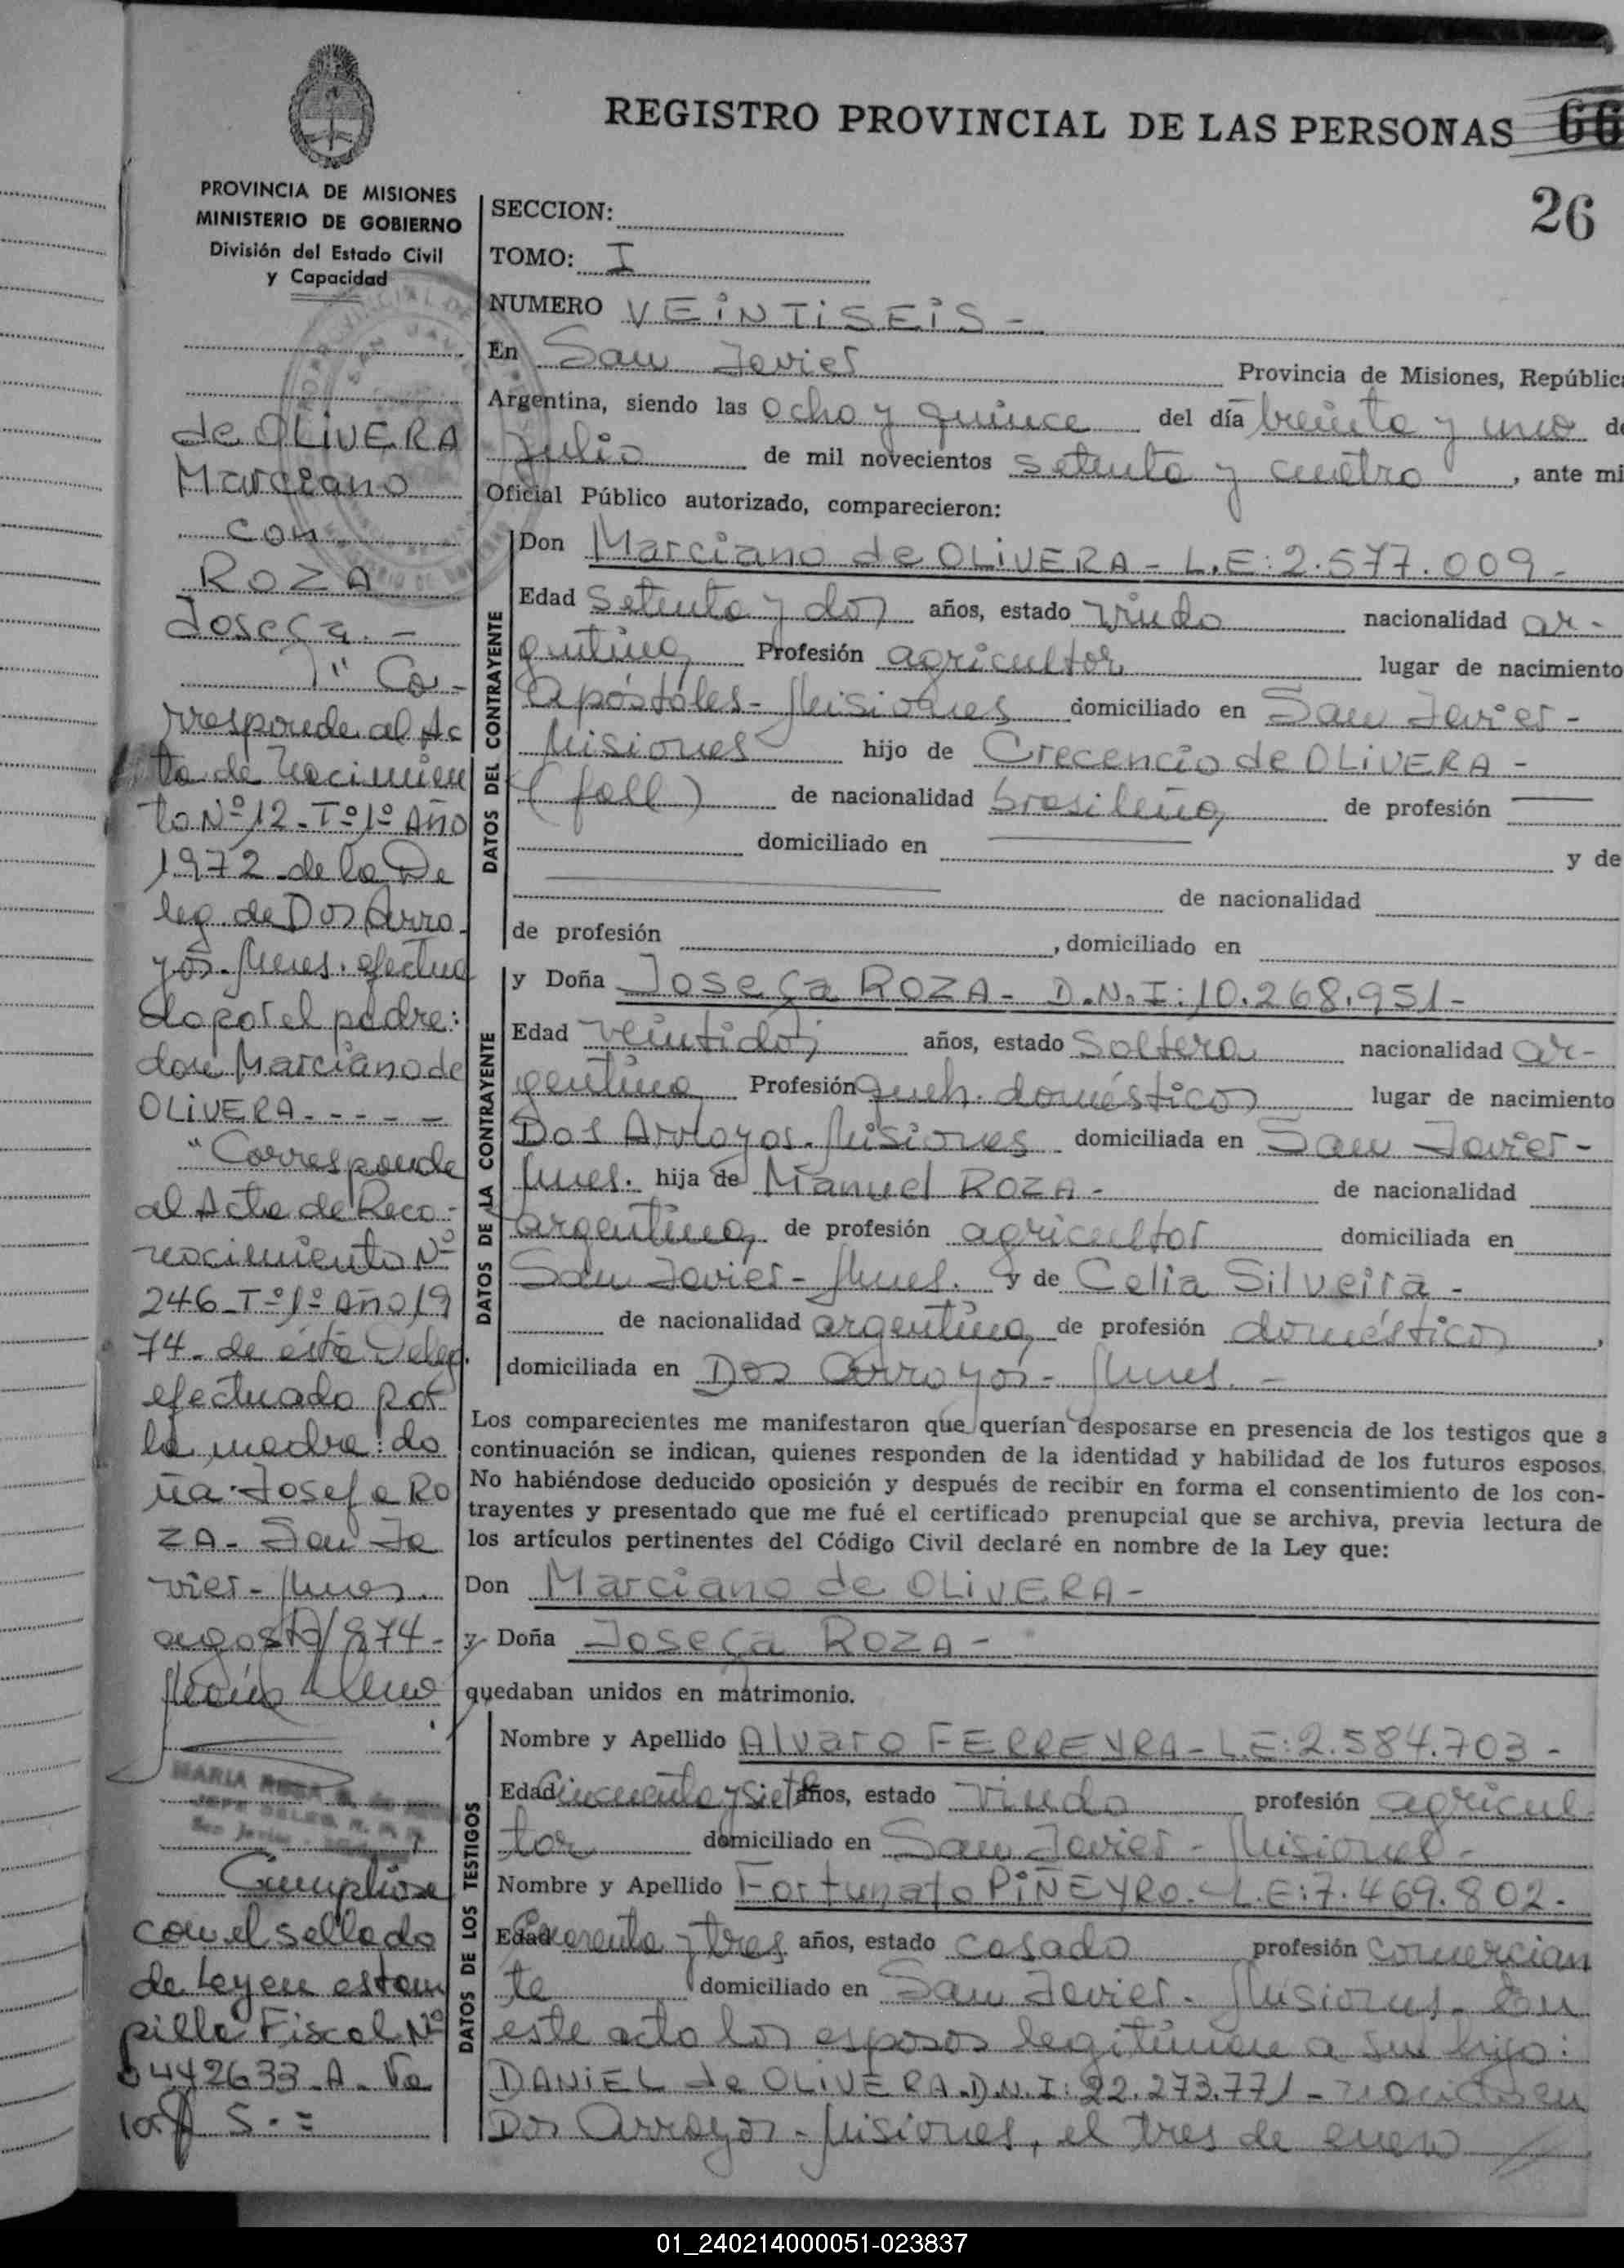 REGISTRO PROVINCIAL DE LAS PERSONAS 66
26
PROVINCIA DE MISIONES
MINISTERIO DE GOBIERNO
División del Estado Civil
y Capacidad
de OLIVERA
Marciano
con
ROZA
Josefa.-
1" Co-
rresponde al Ac
ta de Nacimien
to Nº 12-Tº1º Año
1972-de la De
leg. de Dos Arro
yos-Mnes. efectua
do por el padre:
don Marciano de
OLIVERA-----
"Corresponde
al Acta de Reco-
nocimiento Nº
246-Tº1º Año 19
74-de ésta Deleg.
efectuado por
la madre: do
ña Josefa RO
ZA- San Ja
vier-Mnes.
agosto/974-
MARIA ROSA
JEFE DELEG. R. P. P.
San Javier - Misiones
Cumpliose
con el sellado
de Ley en estam
pilla Fiscal Nº
0442633-A-Va
lor $ 5.=
SECCION:
TOMO: I
NUMERO VEINTISEIS-
En San Javier Provincia de Misiones, República
Argentina, siendo las ocho y quince del día treinta y uno de
julio de mil novecientos setenta y cuatro, ante mi
Oficial Público autorizado, comparecieron:
DATOS DEL CONTRAYENTE
Don Marciano de OLIVERA- L.E:2.577.009-
Edad setenta y dos años, estado viudo nacionalidad ar-
gentina Profesión agricultor lugar de nacimiento
Apóstoles-Misiones domiciliado en San Javier-
Misiones hijo de Crecencio de OLIVERA-
(fall) de nacionalidad brasileña de profesión
domiciliado en y de
de nacionalidad
de profesión , domiciliado en
DATOS DE LA CONTRAYENTE
y Doña Josefa ROZA- D.N.I:10.268.951-
Edad veintidós años, estado soltera nacionalidad ar-
gentina Profesión queh. domésticos lugar de nacimiento
Dos Arroyos-Misiones domiciliada en San Javier-
Mnes. hija de Manuel ROZA- de nacionalidad
argentina, de profesión agricultor domiciliada en
San Javier-Mnes. y de Celia Silveira-
de nacionalidad argentina de profesión domésticos,
domiciliada en Dos Arroyos-Mnes.-
Los comparecientes me manifestaron que querían desposarse en presencia de los testigos que a
continuación se indican, quienes responden de la identidad y habilidad de los futuros esposos.
No habiéndose deducido oposición y después de recibir en forma el consentimiento de los con-
trayentes y presentado que me fué el certificado prenupcial que se archiva, previa lectura de
los artículos pertinentes del Código Civil declaré en nombre de la Ley que:
Don Marciano de OLIVERA-
y Doña Josefa ROZA-
quedaban unidos en matrimonio.
DATOS DE LOS TESTIGOS
Nombre y Apellido Alvaro FERREYRA-L.E:2.584.703-
Edad cincuenta y siete años, estado viudo profesión agricul
tor domiciliado en San Javier-Misiones-
Nombre y Apellido Fortunato PIÑEYRO.-L.E:7.469.802-
Edad cuarenta y tres años, estado casado profesión comercian
te domiciliado en San Javier-Misiones-En
este acto los esposos legitiman a su hijo:
DANIEL de OLIVERA.D.N.I:22.273.771-nacido en
Dos Arroyos-Misiones, el tres de enero
01_240214000051-023837